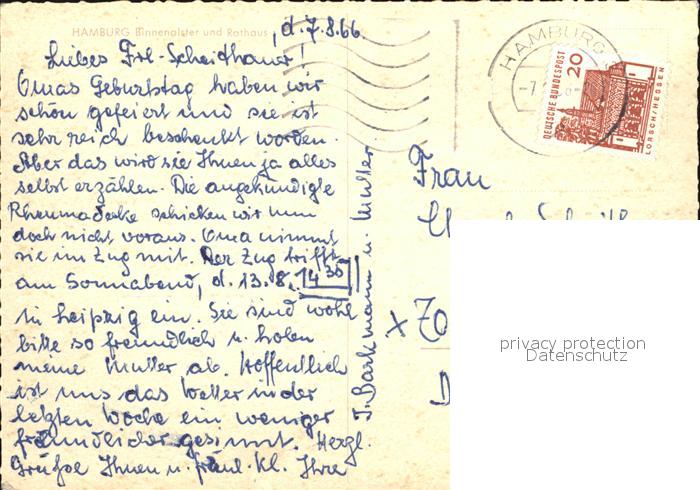 HAMBURG Binnenalster und Rathaus
, d. 7.8.66
Liebes Frl. Scheithauer!
Omas Geburtstag haben wir
schön gefeiert und sie ist
sehr reich beschenkt worden.
Aber das wird sie Ihnen ja alles
selbst erzählen. Die angekündigte
Rheumadecke schicken wir nun
doch nicht voraus. Oma nimmt
sie im Zug mit. Der Zug trifft
am Sonnabend, d. 13.8. 14 35
in Leipzig ein. Sie sind wohl
bitte so freundlich u. holen
meine Mutter ab. Hoffentlich
ist uns das Wetter in der
letzten Woche ein weniger
freundlicher gesinnt. Herzl.
Grüße Ihnen u. Fräul. Kl. Ihre
I. Barkmann u. Mutter
HAMBURG
-7.
DEUTSCHE BUNDESPOST
20
LORSCH/HESSEN
Frau
x 70
privacy protection
Datenschutz